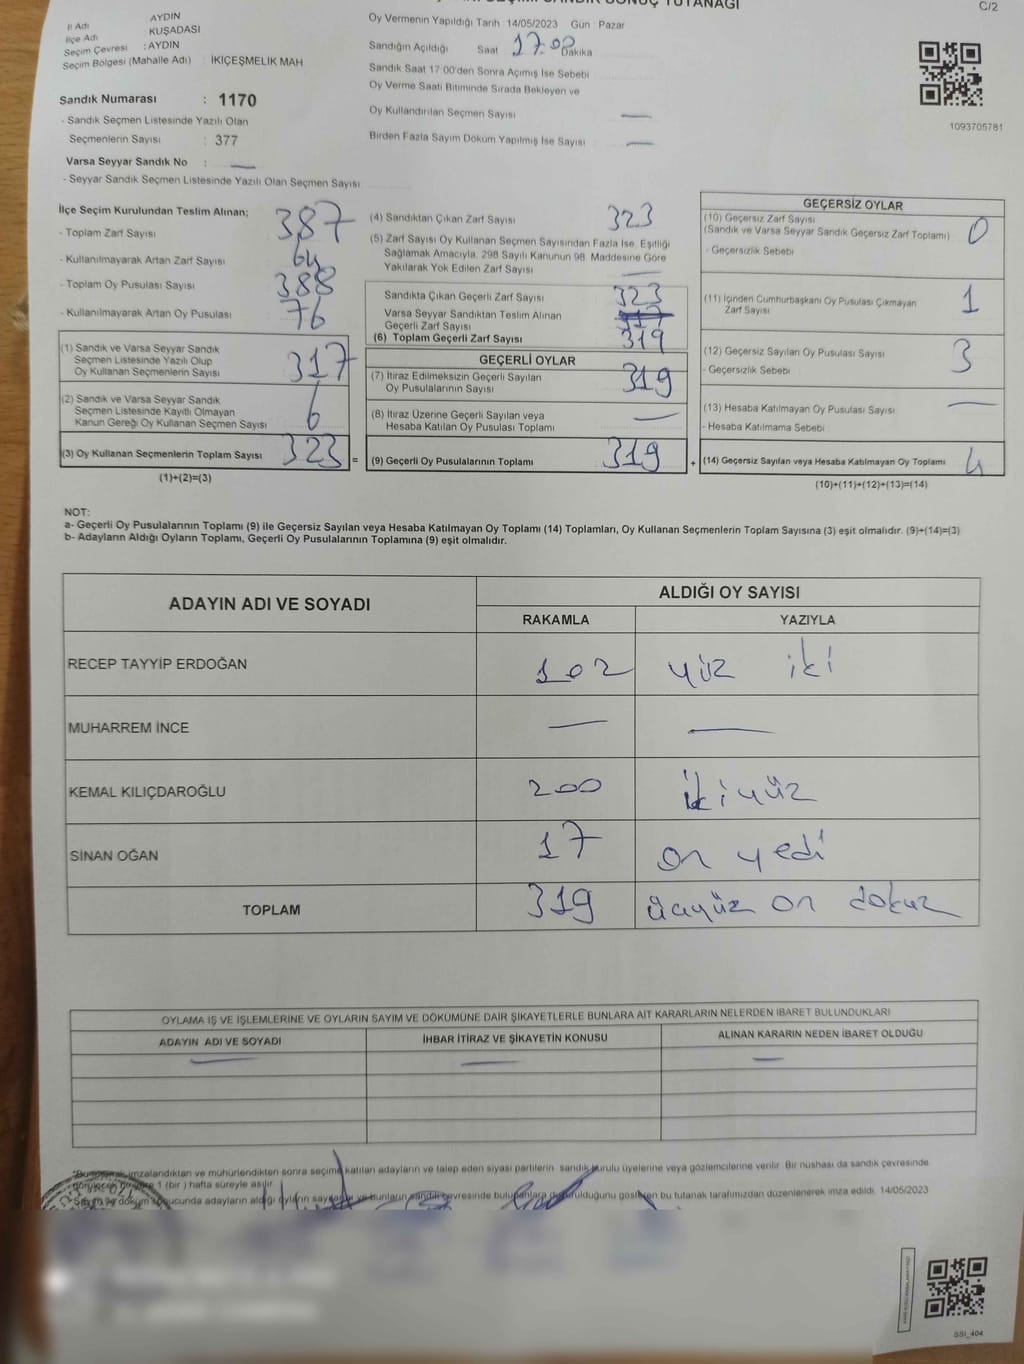 C/2
İl Adı AYDIN
İlçe Adı KUŞADASI
Seçim Çevresi : AYDIN
Seçim Bölgesi (Mahalle Adı) : İKİÇEŞMELİK MAH
Sandık Numarası : 1170
- Sandık Seçmen Listesinde Yazılı Olan
Seçmenlerin Sayısı : 377
Varsa Seyyar Sandık No : —
- Seyyar Sandık Seçmen Listesinde Yazılı Olan Seçmen Sayısı
Oy Vermenin Yapıldığı Tarih 14/05/2023 Gün Pazar
Sandığın Açıldığı Saat 17.00 Dakika
Sandık Saat 17:00'den Sonra Açımış İse Sebebi
Oy Verme Saati Bitiminde Sırada Bekleyen ve
Oy Kullandırılan Seçmen Sayısı —
Birden Fazla Sayım Döküm Yapılmış İse Sayısı —
1093705781
İlçe Seçim Kurulundan Teslim Alınan;
- Toplam Zarf Sayısı 387
- Kullanılmayarak Artan Zarf Sayısı 64
- Toplam Oy Pusulası Sayısı 388
- Kullanılmayarak Artan Oy Pusulası 76
(1) Sandık ve Varsa Seyyar Sandık
Seçmen Listesinde Yazılı Olup
Oy Kullanan Seçmenlerin Sayısı 317
(2) Sandık ve Varsa Seyyar Sandık
Seçmen Listesinde Kayıtlı Olmayan
Kanun Gereği Oy Kullanan Seçmen Sayısı 6
(3) Oy Kullanan Seçmenlerin Toplam Sayısı 323 =
(1)+(2)=(3)
(4) Sandıktan Çıkan Zarf Sayısı 323
(5) Zarf Sayısı Oy Kullanan Seçmen Sayısından Fazla İse, Eşitliği
Sağlamak Amacıyla, 298 Sayılı Kanunun 98. Maddesine Göre
Yakılarak Yok Edilen Zarf Sayısı —
Sandıkta Çıkan Geçerli Zarf Sayısı 323
Varsa Seyyar Sandıktan Teslim Alınan
Geçerli Zarf Sayısı
(6) Toplam Geçerli Zarf Sayısı 319
GEÇERLİ OYLAR
(7) İtiraz Edilmeksizin Geçerli Sayılan
Oy Pusulalarının Sayısı 319
(8) İtiraz Üzerine Geçerli Sayılan veya
Hesaba Katılan Oy Pusulası Toplamı —
(9) Geçerli Oy Pusulalarının Toplamı 319 +
GEÇERSİZ OYLAR
(10) Geçersiz Zarf Sayısı
(Sandık ve Varsa Seyyar Sandık Geçersiz Zarf Toplamı) 0
- Geçersizlik Sebebi
(11) İçinden Cumhurbaşkanı Oy Pusulası Çıkmayan
Zarf Sayısı 1
(12) Geçersiz Sayılan Oy Pusulası Sayısı 3
- Geçersizlik Sebebi
(13) Hesaba Katılmayan Oy Pusulası Sayısı —
- Hesaba Katılmama Sebebi
(14) Geçersiz Sayılan veya Hesaba Katılmayan Oy Toplamı 4
(10)+(11)+(12)+(13)=(14)
NOT:
a- Geçerli Oy Pusulalarının Toplamı (9) ile Geçersiz Sayılan veya Hesaba Katılmayan Oy Toplamı (14) Toplamları, Oy Kullanan Seçmenlerin Toplam Sayısına (3) eşit olmalıdır. (9)+(14)=(3)
b- Adayların Aldığı Oyların Toplamı, Geçerli Oy Pusulalarının Toplamına (9) eşit olmalıdır.
ADAYIN ADI VE SOYADI ALDIĞI OY SAYISI
RAKAMLA YAZIYLA
RECEP TAYYİP ERDOĞAN 102 yüz iki
MUHARREM İNCE — —
KEMAL KILIÇDAROĞLU 200 ikiyüz
SİNAN OĞAN 17 on yedi
TOPLAM 319 üçyüz on dokuz
OYLAMA İŞ VE İŞLEMLERİNE VE OYLARIN SAYIM VE DÖKÜMÜNE DAİR ŞİKAYETLERLE BUNLARA AİT KARARLARIN NELERDEN İBARET BULUNDUKLARI
ADAYIN ADI VE SOYADI İHBAR İTİRAZ VE ŞİKAYETİN KONUSU ALINAN KARARIN NEDEN İBARET OLDUĞU
— — —
imzalandıktan ve mühürlendikten sonra seçime katılan adayların ve talep eden siyasi partilerin sandık kurulu üyelerine veya gözlemcilerine verilir. Bir nüshası da sandık çevresinde
1 (bir) hafta süreyle asılır.
sonucunda adayların aldığı oyların ve bunların sandık çevresinde gösteren bu tutanak tarafımızdan düzenlenerek imza edildi. 14/05/2023
SSI_404